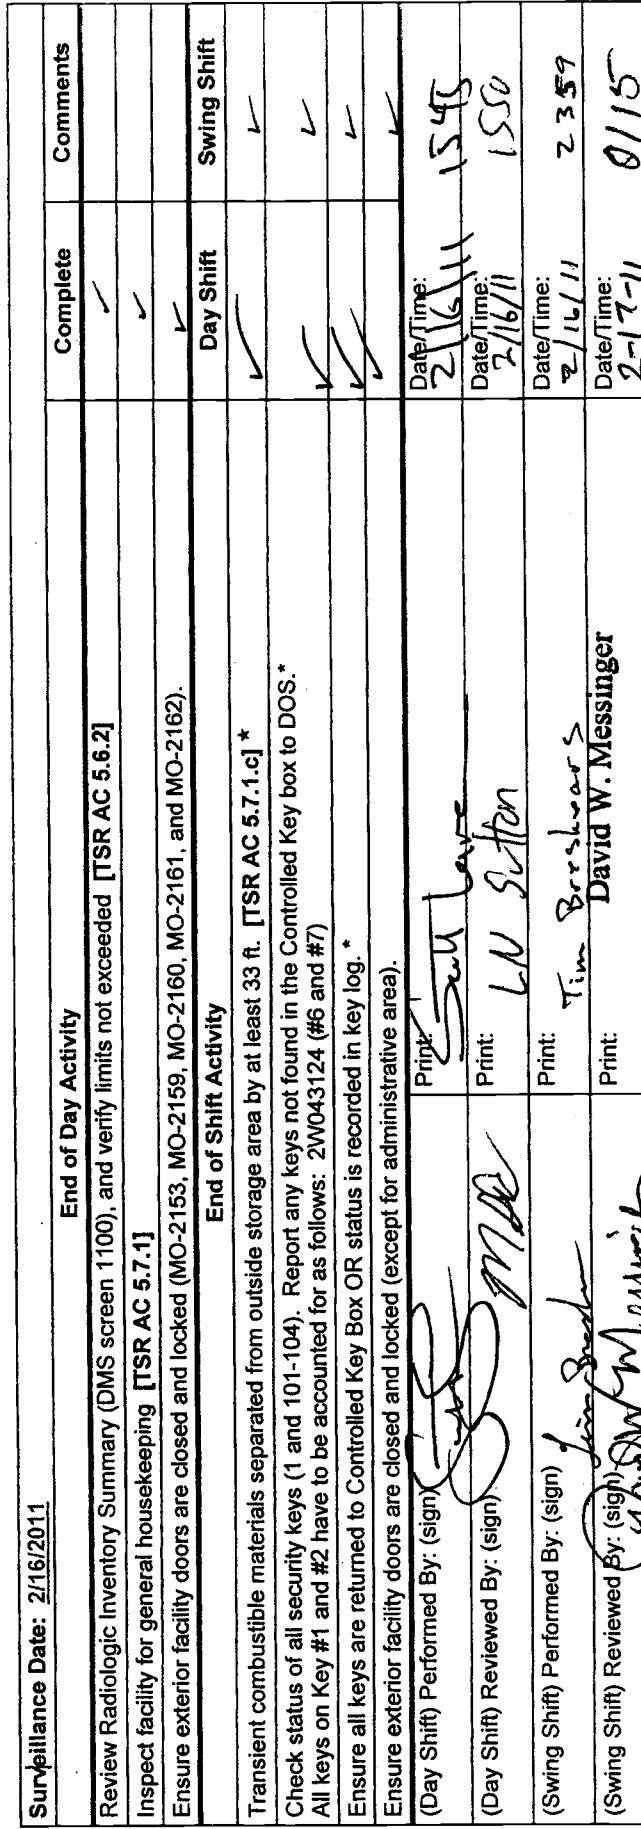 Surveillance Date: 2/16/2011
End of Day Activity Complete Comments
Review Radiologic Inventory Summary (DMS screen 1100), and verify limits not exceeded [TSR AC 5.6.2] ✓
Inspect facility for general housekeeping [TSR AC 5.7.1] ✓
Ensure exterior facility doors are closed and locked (MO-2153, MO-2159, MO-2160, MO-2161, and MO-2162). ✓
End of Shift Activity Day Shift Swing Shift
Transient combustible materials separated from outside storage area by at least 33 ft. [TSR AC 5.7.1.c] * ✓ ✓
Check status of all security keys (1 and 101-104). Report any keys not found in the Controlled Key box to DOS.*
All keys on Key #1 and #2 have to be accounted for as follows: 2W043124 (#6 and #7) ✓ ✓
Ensure all keys are returned to Controlled Key Box OR status is recorded in key log. * ✓ ✓
Ensure exterior facility doors are closed and locked (except for administrative area). ✓ ✓
(Day Shift) Performed By: (sign) Print: Scott Date/Time: 2/16/11 1545
(Day Shift) Reviewed By: (sign) Print: LN Sutton Date/Time: 2/16/11 1550
(Swing Shift) Performed By: (sign) Tim Print: Tim Breshears Date/Time: 2/16/11 2359
(Swing Shift) Reviewed By: (sign) Print: David W. Messinger Date/Time: 2-17-11 0115